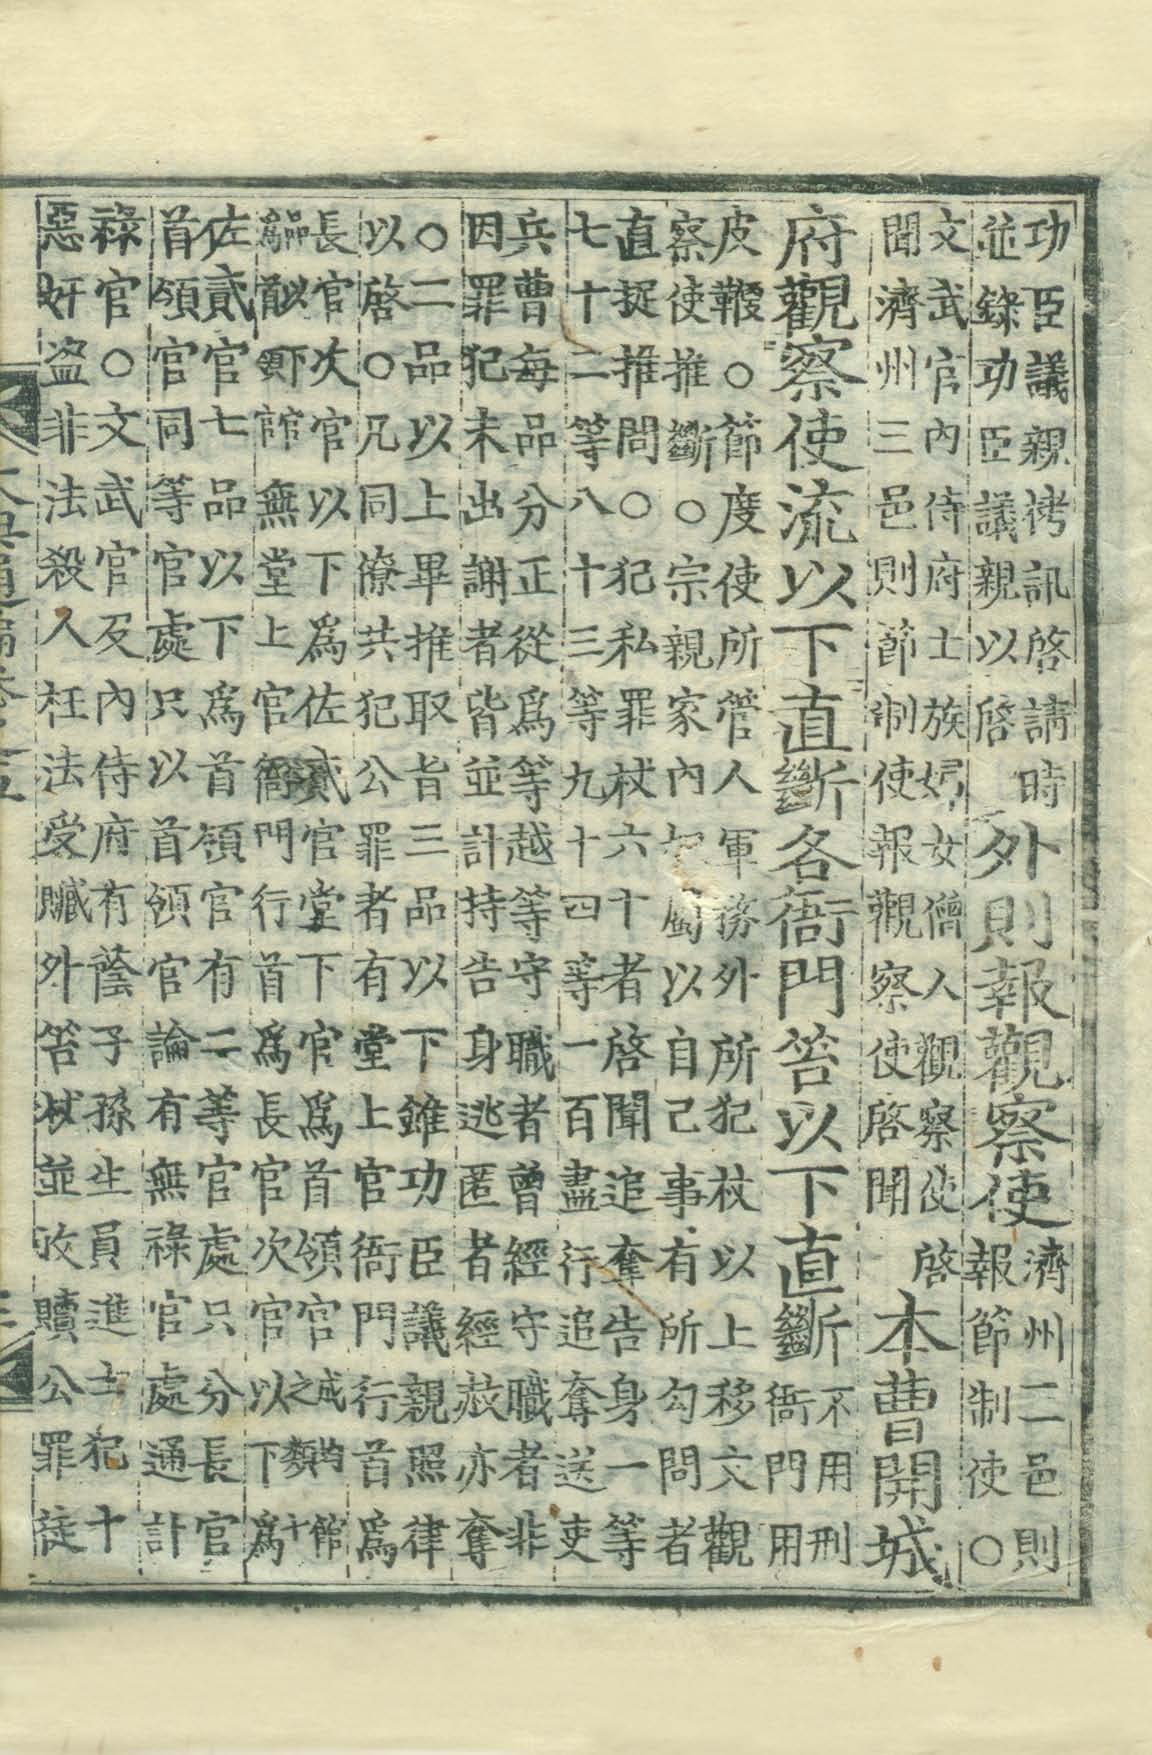 功臣議親拷訊啓請時
並錄功臣議親以啓
外則報觀察使
濟州二邑則
報節制使○
文武官內侍府士族婦女僧人觀察使啓
聞濟州三邑則節制使報觀察使啓聞
本曹開城
府觀察使流以下直斷各衙門笞以下直斷
不用刑
衙門用
皮鞭○節度使所管人軍務外所犯杖以上移文觀
察使推斷○宗親家內屬以自己事有所勾問者
直捉推問○犯私罪杖六十者啓聞追奪告身一等
七十二等八十三等九十四等一百盡行追奪送吏
兵曹每品分正從爲等越等守職者曾經守職者非
因罪犯未出謝者皆並計持告身逃匿者經赦亦奪
○二品以上畢推取旨三品以下雖功臣議親照律
以啓○凡同僚共犯公罪者有堂上官衙門行首爲
長官次官以下爲佐貳官堂下官爲首領官
成均館
之類七
品以下
爲首領官
無堂上官衙門行首爲長官次官以下爲
佐貳官七品以下爲首領官有二等官處只分長官
首領官同等官處只以首領官論有無祿官處通計
祿官○文武官及內侍府有蔭子孫生員進士犯十
惡奸盗非法殺人枉法受贓外笞杖並收贖公罪徒
大典通編卷之五